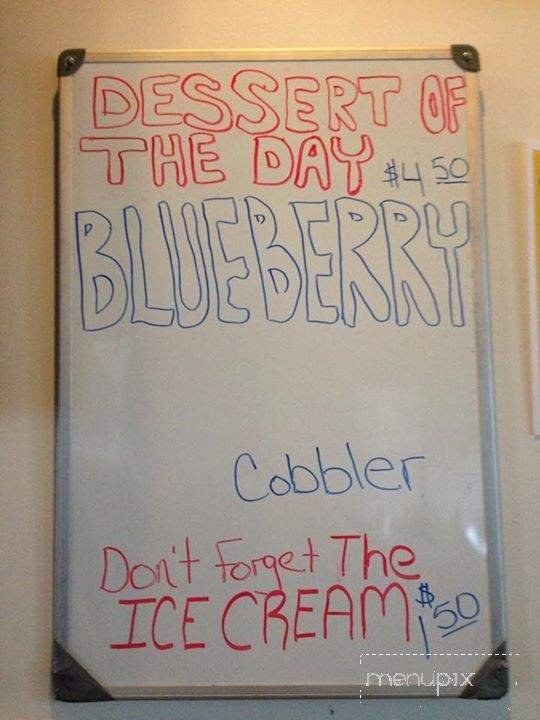 DESSERT OF
THE DAY $4 50
BLUEBERRY
Cobbler
Don't Forget The
ICE CREAM $1 50
menupix